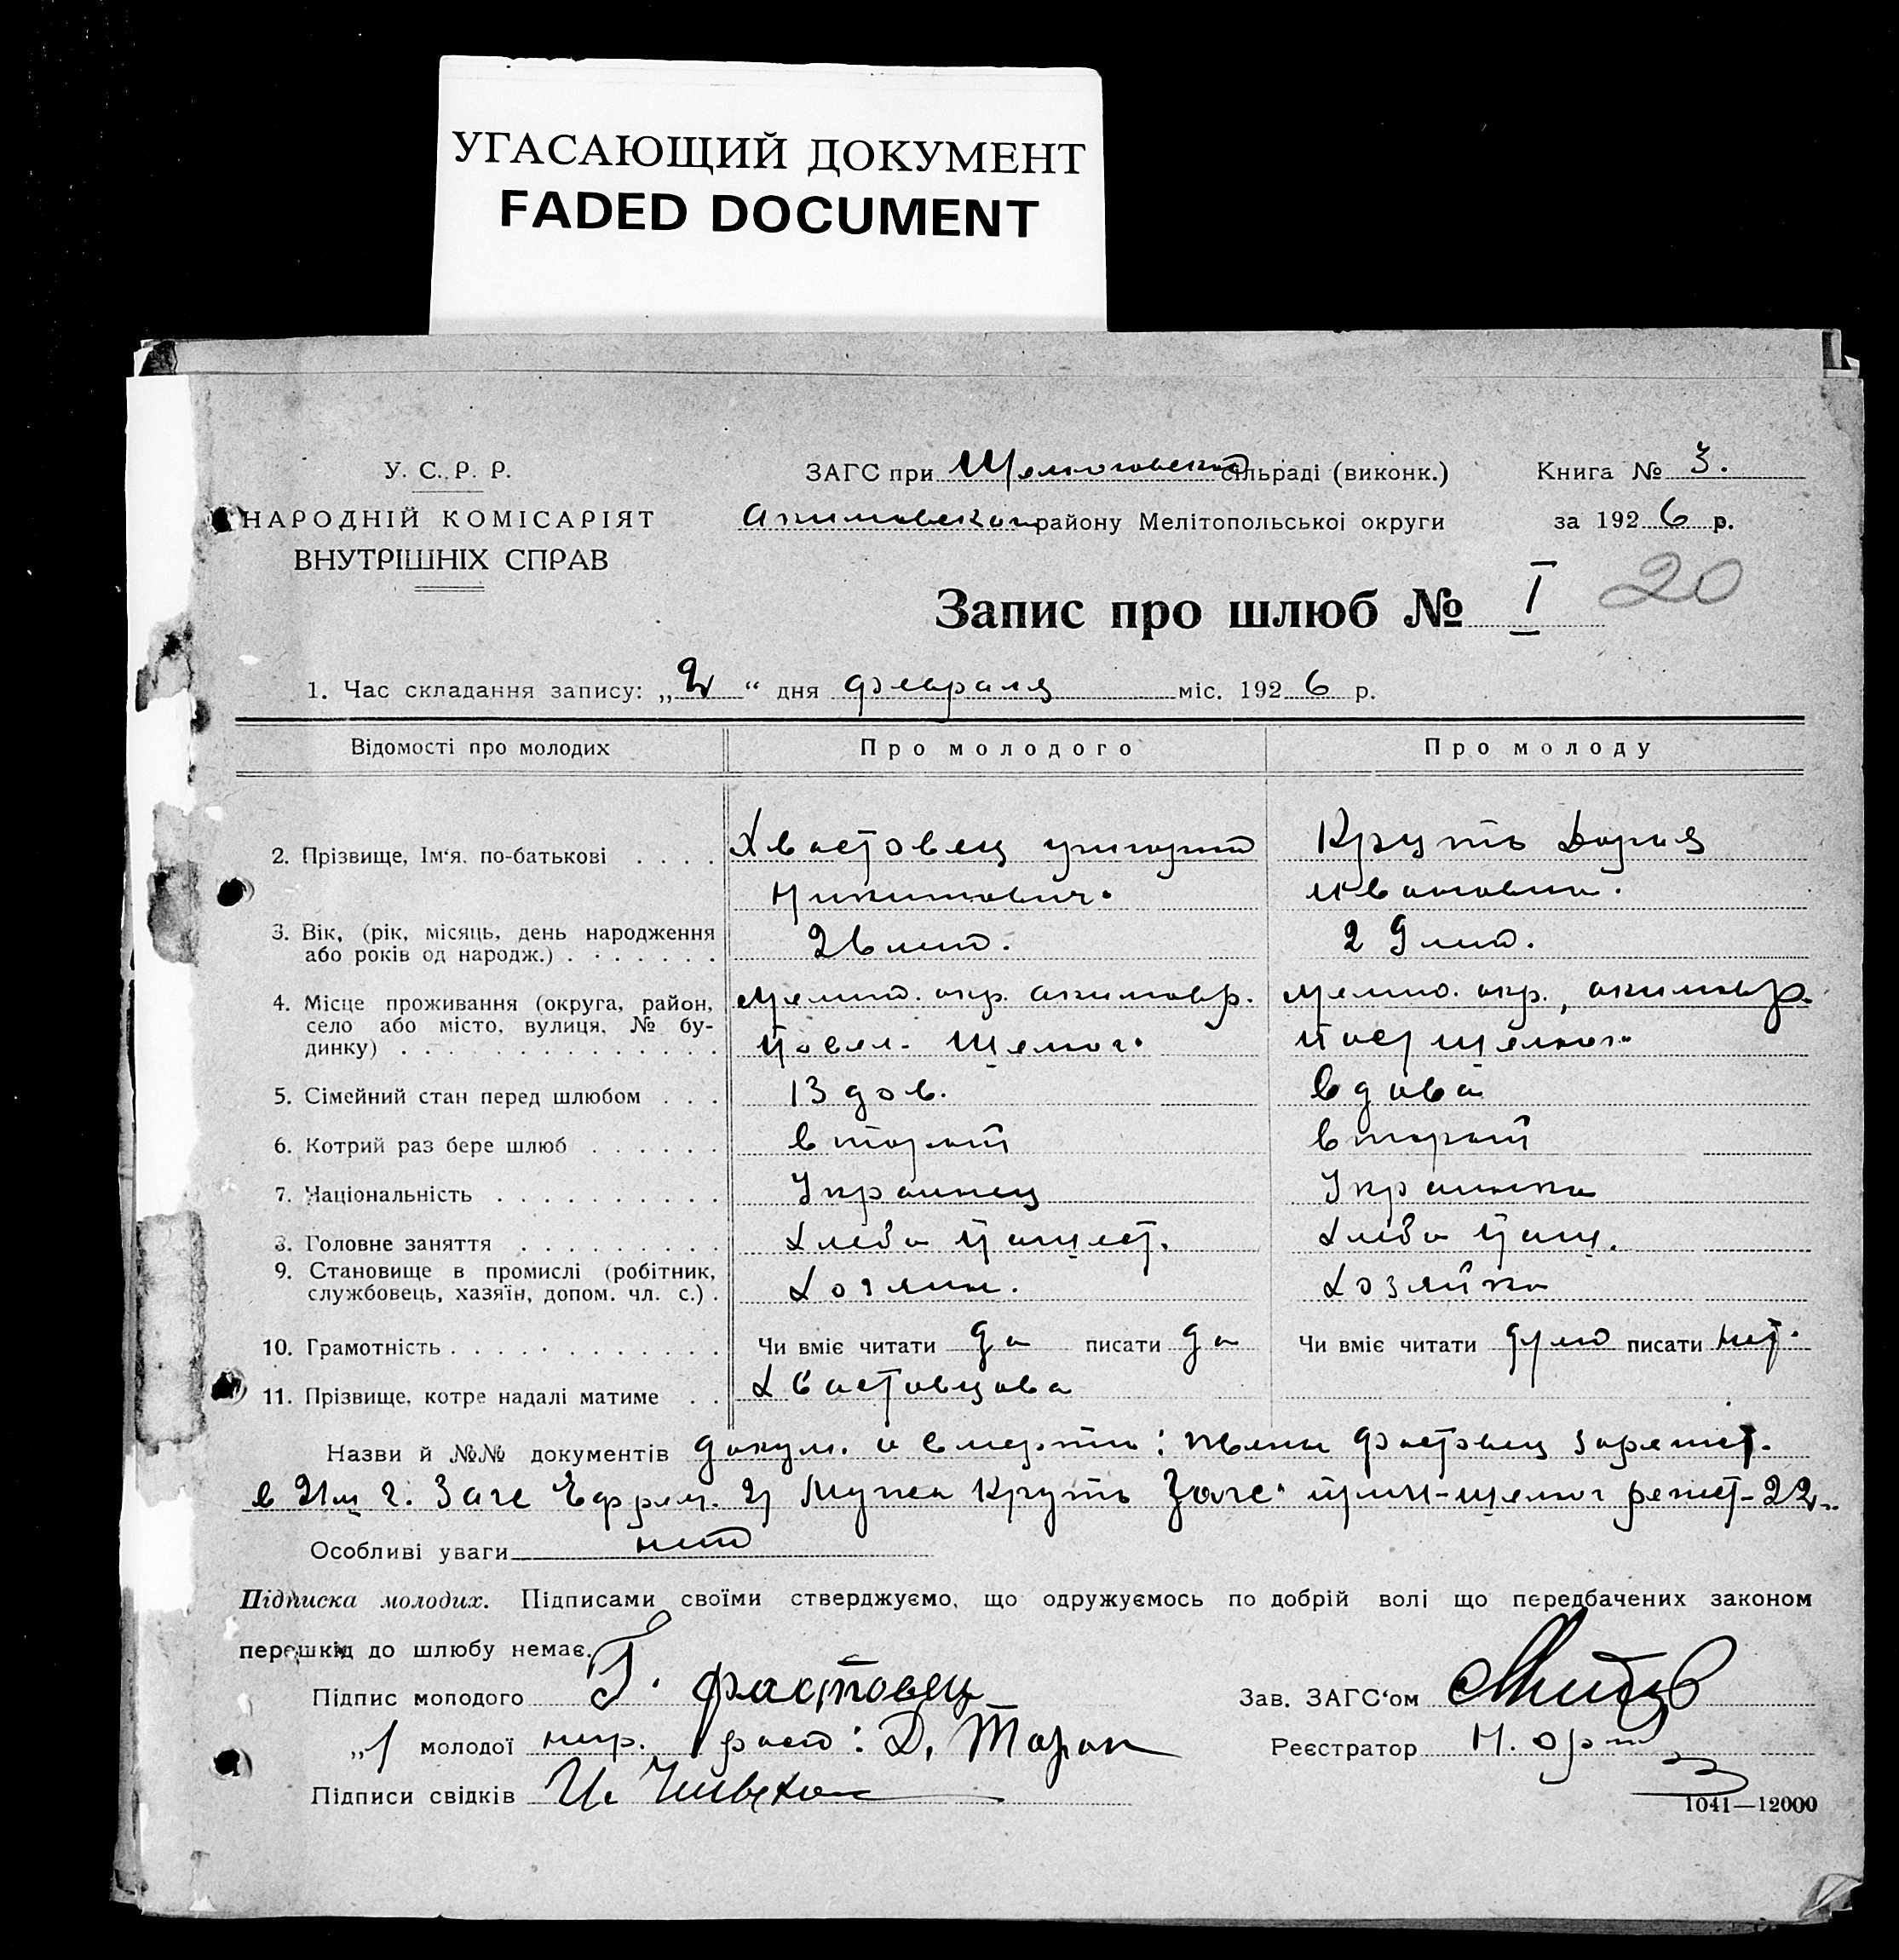 УГАСАЮЩИЙ ДОКУМЕНТ
FADED DOCUMENT
У. С. Р. Р.
НАРОДНІЙ КОМІСАРІЯТ
ВНУТРІШНІХ СПРАВ
ЗАГС при сільраді (виконк.)
Акимовском району Мелітопольської округи
Книга № 3.
за 1926 р.
Запис про шлюб № I 20
1. Час складання запису: „2“ дня февраля міс. 1926 р.
Відомості про молодих Про молодого Про молоду
2. Прізвище, Ім'я. по-батькові . . . . Хвастовец григорий Круть Дария
Никитович. Ивановна.
3. Вік, (рік, місяць, день народження
або років од народж.) . . . . . . . 26 лет. 29 лет.
4. Місце проживання (округа, район,
село або місто, вулиця, № бу-
динку) . . . . . . . . . . . . . . Мелит. окр. акимовр. Мелит. окр., акимовр.
5. Сімейний стан перед шлюбом . . . вдов. вдова
6. Котрий раз бере шлюб . . . . . . второй второй
7. Національність . . . . . . . . . . Украинец Украинка
8. Головне заняття . . . . . . . . . Хлебопашест. Хлебопащ.
9. Становище в промислі (робітник,
службовець, хазяїн, допом. чл. с.) . Хозяин. Хозяйка
10. Грамотність . . . . . . . . . . . . Чи вміє читати да писати да Чи вміє читати писати нет.
11. Прізвище, котре надалі матиме . . Хвастовцова
Назви й №№ документів докум. о смерти: жены Фастовец зарегист.
в 21м г. Загс 2) Мужа Круть Загс
Особливі уваги нет
Підписка молодих. Підписами своїми стверджуємо, що одружуємось по добрій волі що передбачених законом
перешкід до шлюбу немає.
Підпис молодого Г. Фастовец
Зав. ЗАГС'ом
„ молодої Д. Таран
Реєстратор
Підписи свідків
1041—12000